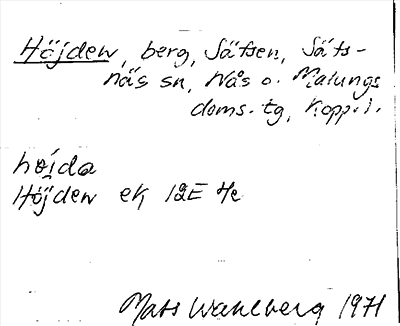 Höjden, berg, Sätsen, Säts-
näs sn, Nås o. Malungs
doms. tg, Kopp. l.
höida
Höjden ek 12E 4e
Mats Wahlberg 1971